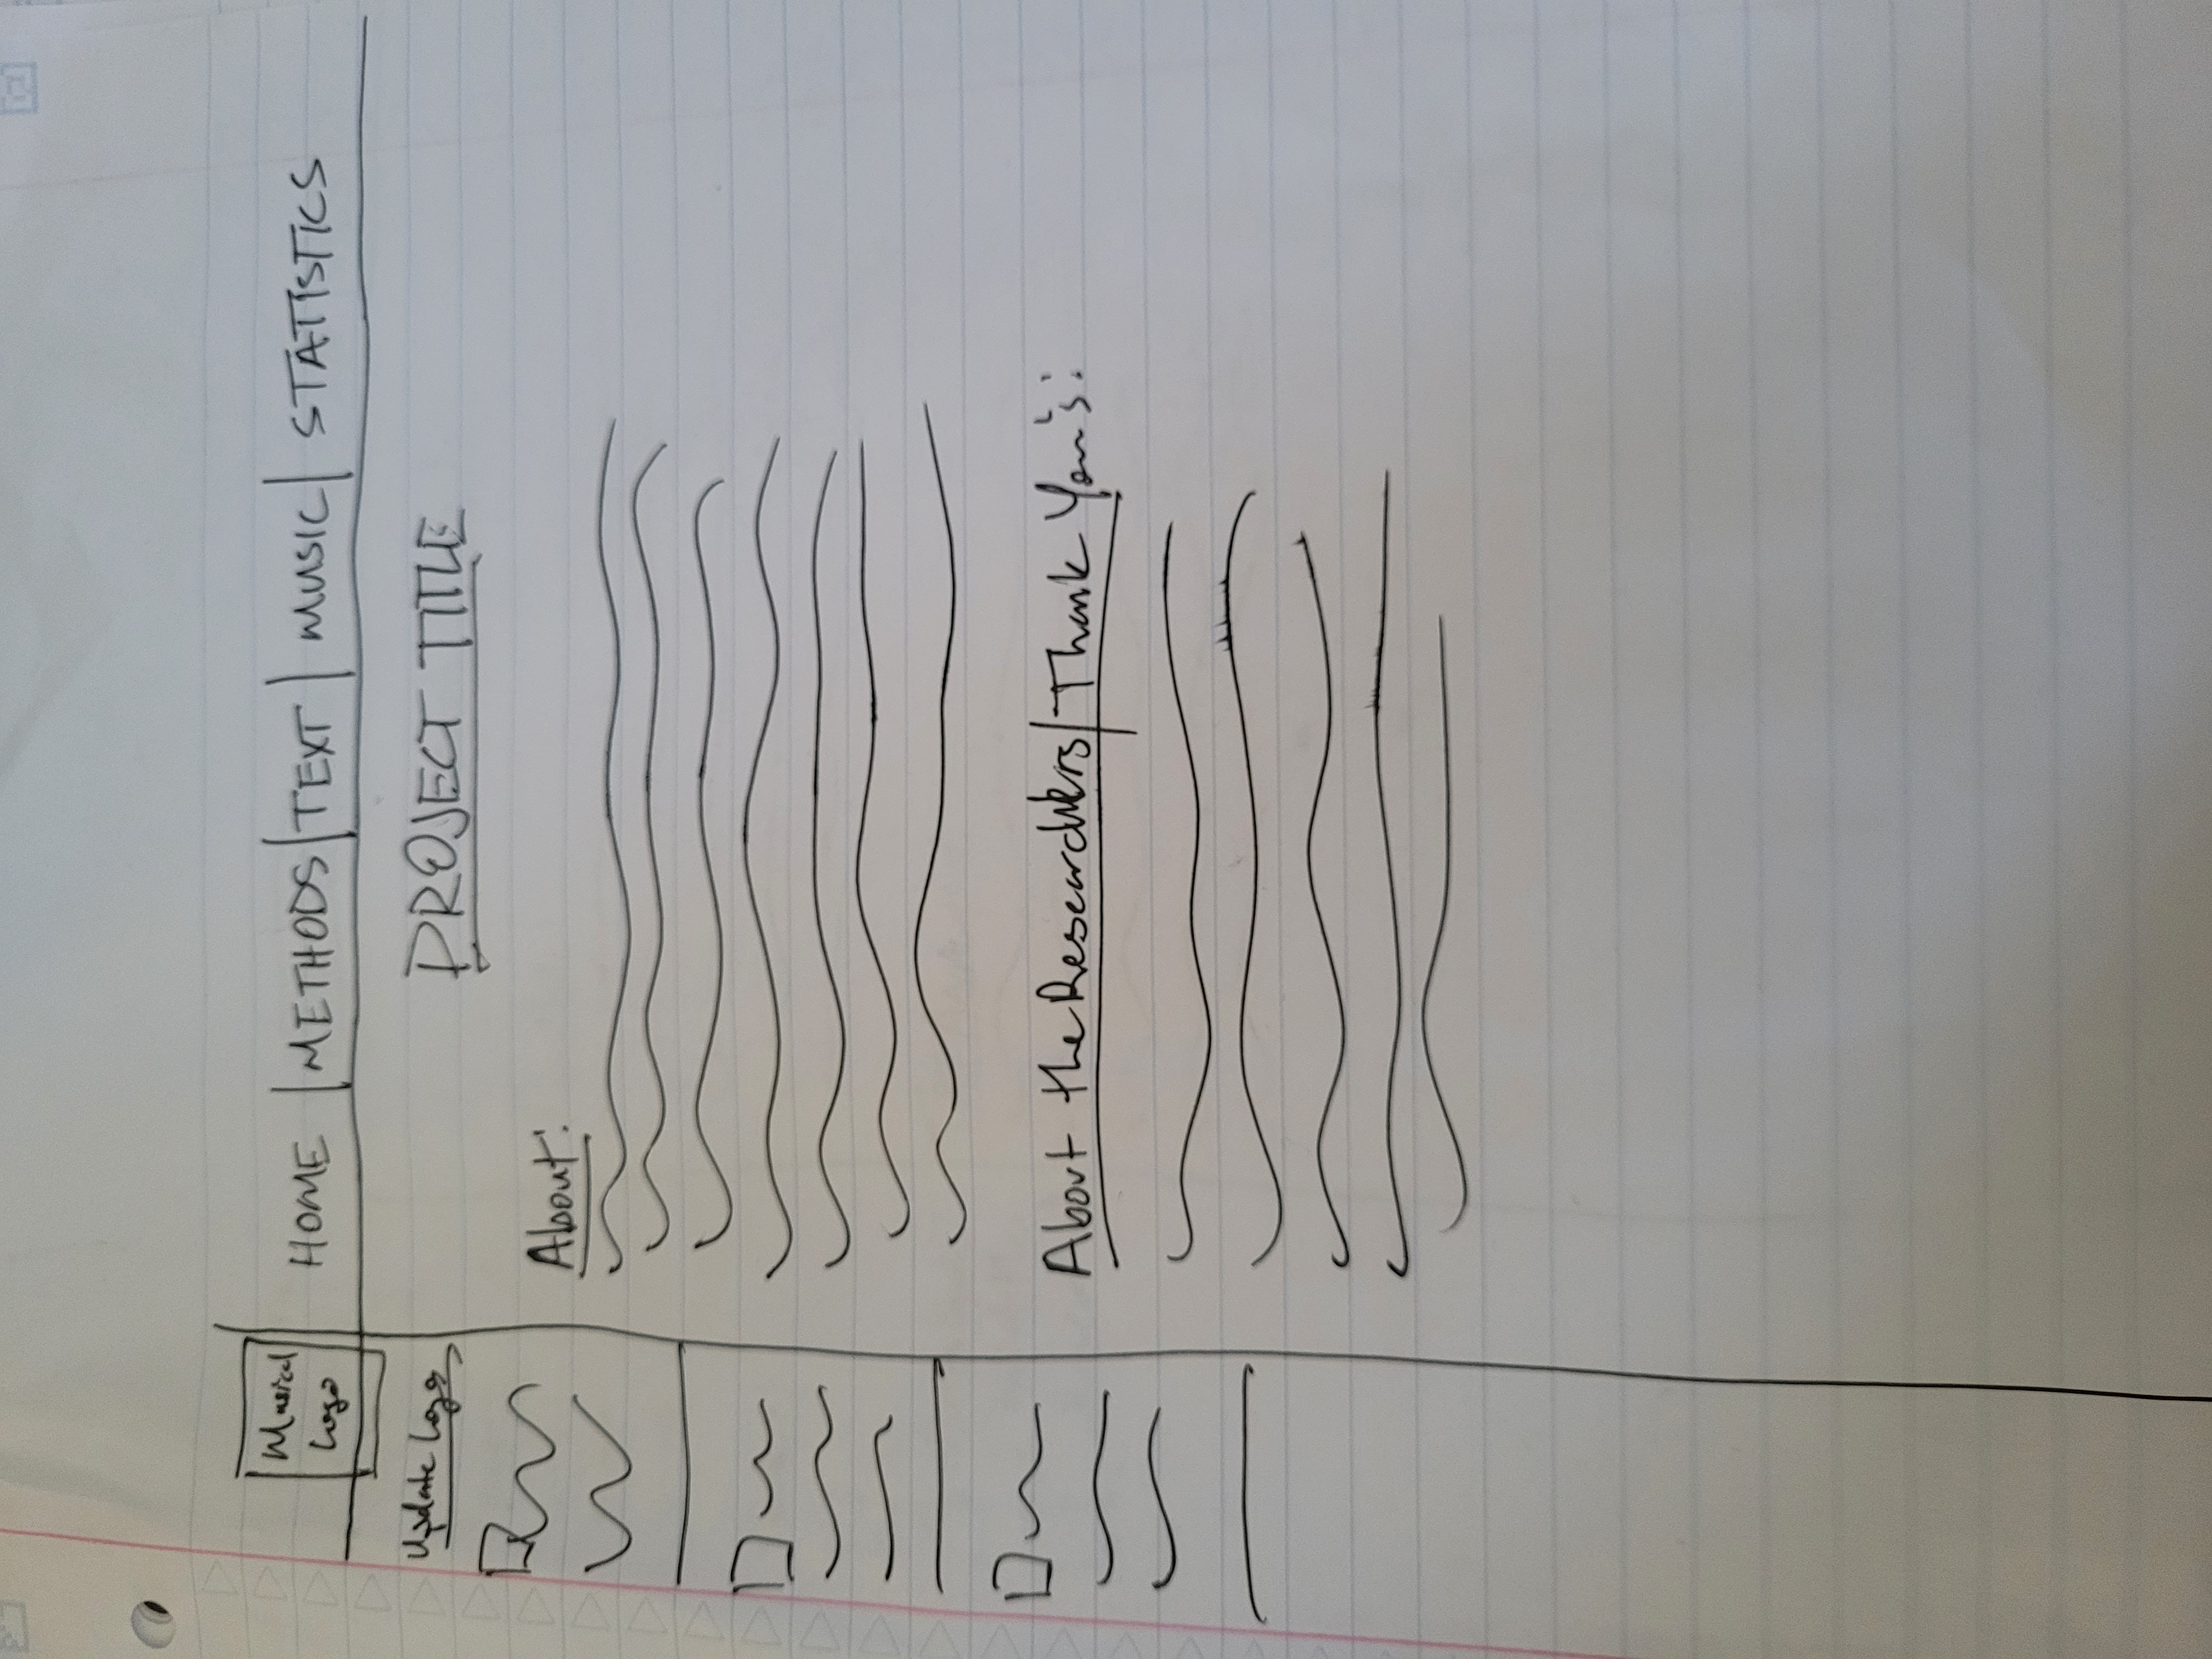 Musical
Logo
HOME | METHODS | TEXT | MUSIC | STATISTICS
Update Logo
PROJECT TITLE
About:
About the Researchers/Thank You's: